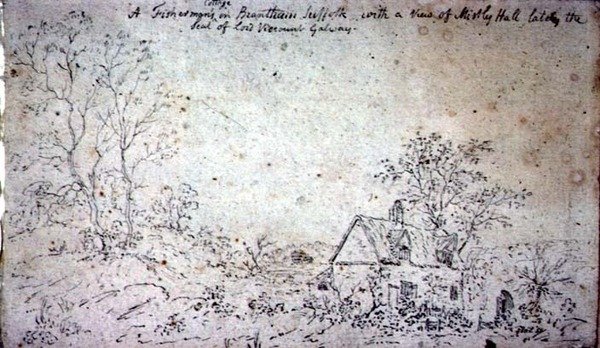 Cottage
A Fishermans in Brantham Suffolk with a View of Mistly Hall lately the
Seat of Lord Viscount Galway.